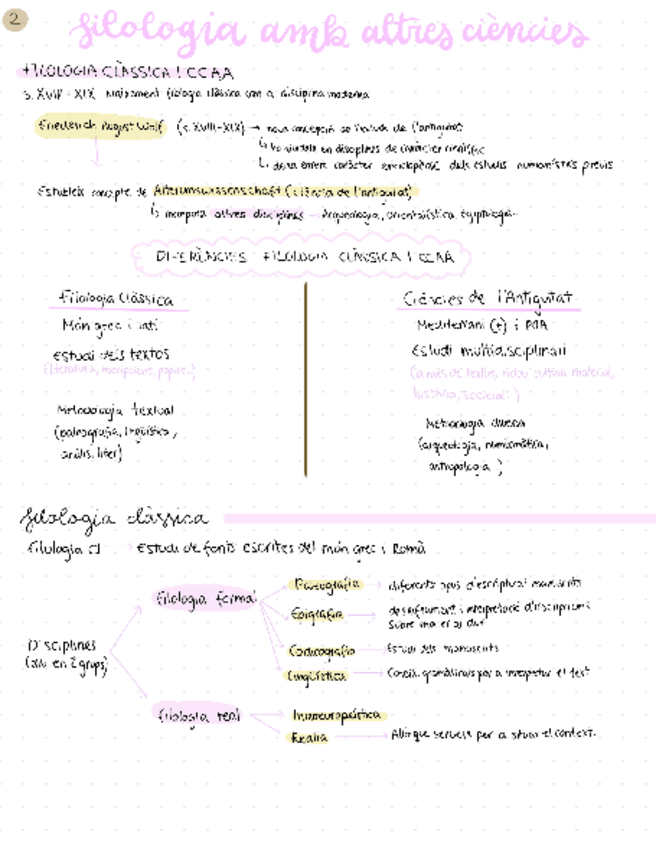 2
filologia amb altres ciències
FILOLOGIA CLÀSSICA I CCAA
s. XVIII - XIX naixement filologia clàssica com a disciplina moderna
Friederich August Wolf (s. XVIII-XIX) → nova concepció de l'estudi de l'antiguitat
↳ disciplines de caràcter científic
↳ deixa enrere caràcter enciclopèdic dels estudis humanístics previs
Estableix concepte de Alterumswissenschaft (ciència de l'antiguitat)
↳ incorpora altres disciplines Arqueologia, orientalística, Egiptologia
DIFERÈNCIES FILOLOGIA CLÀSSICA I CCAA
Filologia Clàssica
Món grec i llatí
Estudi dels textos
(literatura, inscripcions, papirs..)
Metodologia textual
(paleografia, lingüística,
anàlisi, liter)
Ciències de l'Antiguitat
Mediterrani (+) i POA
Estudi multidisciplinari
(a més de textos, cultura material,
història, societat)
Metodologia diversa
(arqueologia, numismàtica,
antropologia)
filologia clàssica
Filologia cl → Estudi de fonts escrites del món grec i Romà
Disciplines
(div. en 2 grups)
Filologia formal
Paleografia → diferents tipus d'escriptura manuscrits
Epigrafia → desxiframent i interpretació d'inscripcions
sobre material dur
Codicologia → Estudi dels manuscrits
Lingüística → Coneix. gramàticals per a interpretar el text
Filologia real
Indoeuropeística
Realia → Allò que serveix per a situar el context.